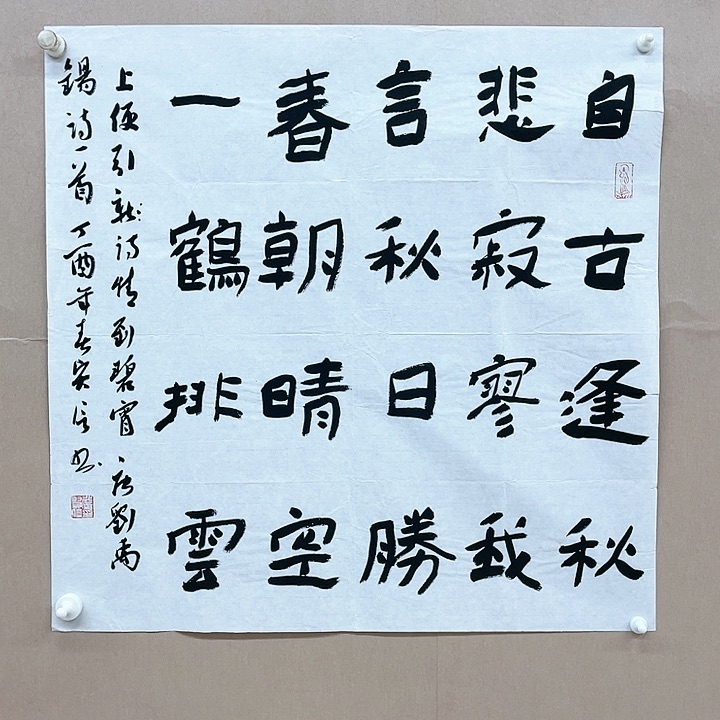 自古逢秋
悲寂寥我
言秋日勝
春朝晴空
一鶴排雲
上便引就詩情到碧霄 唐劉禹
錫詩一首 丁酉年春